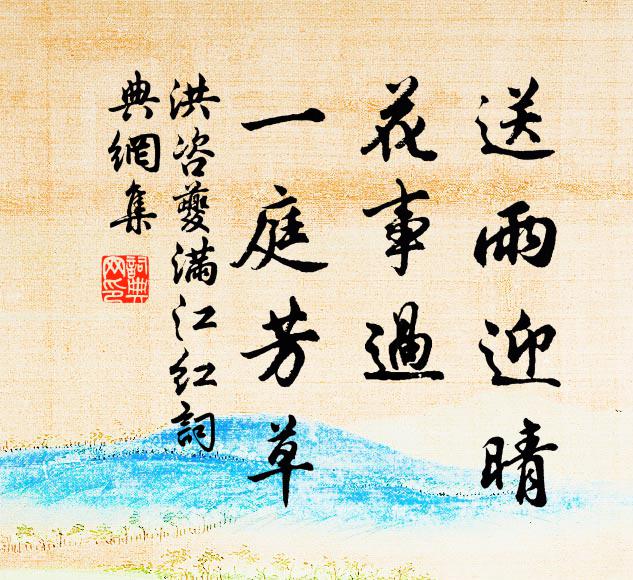 送雨迎晴
花事過
一庭芳草
洪咨夔滿江紅詞
典網集
詞典
网印